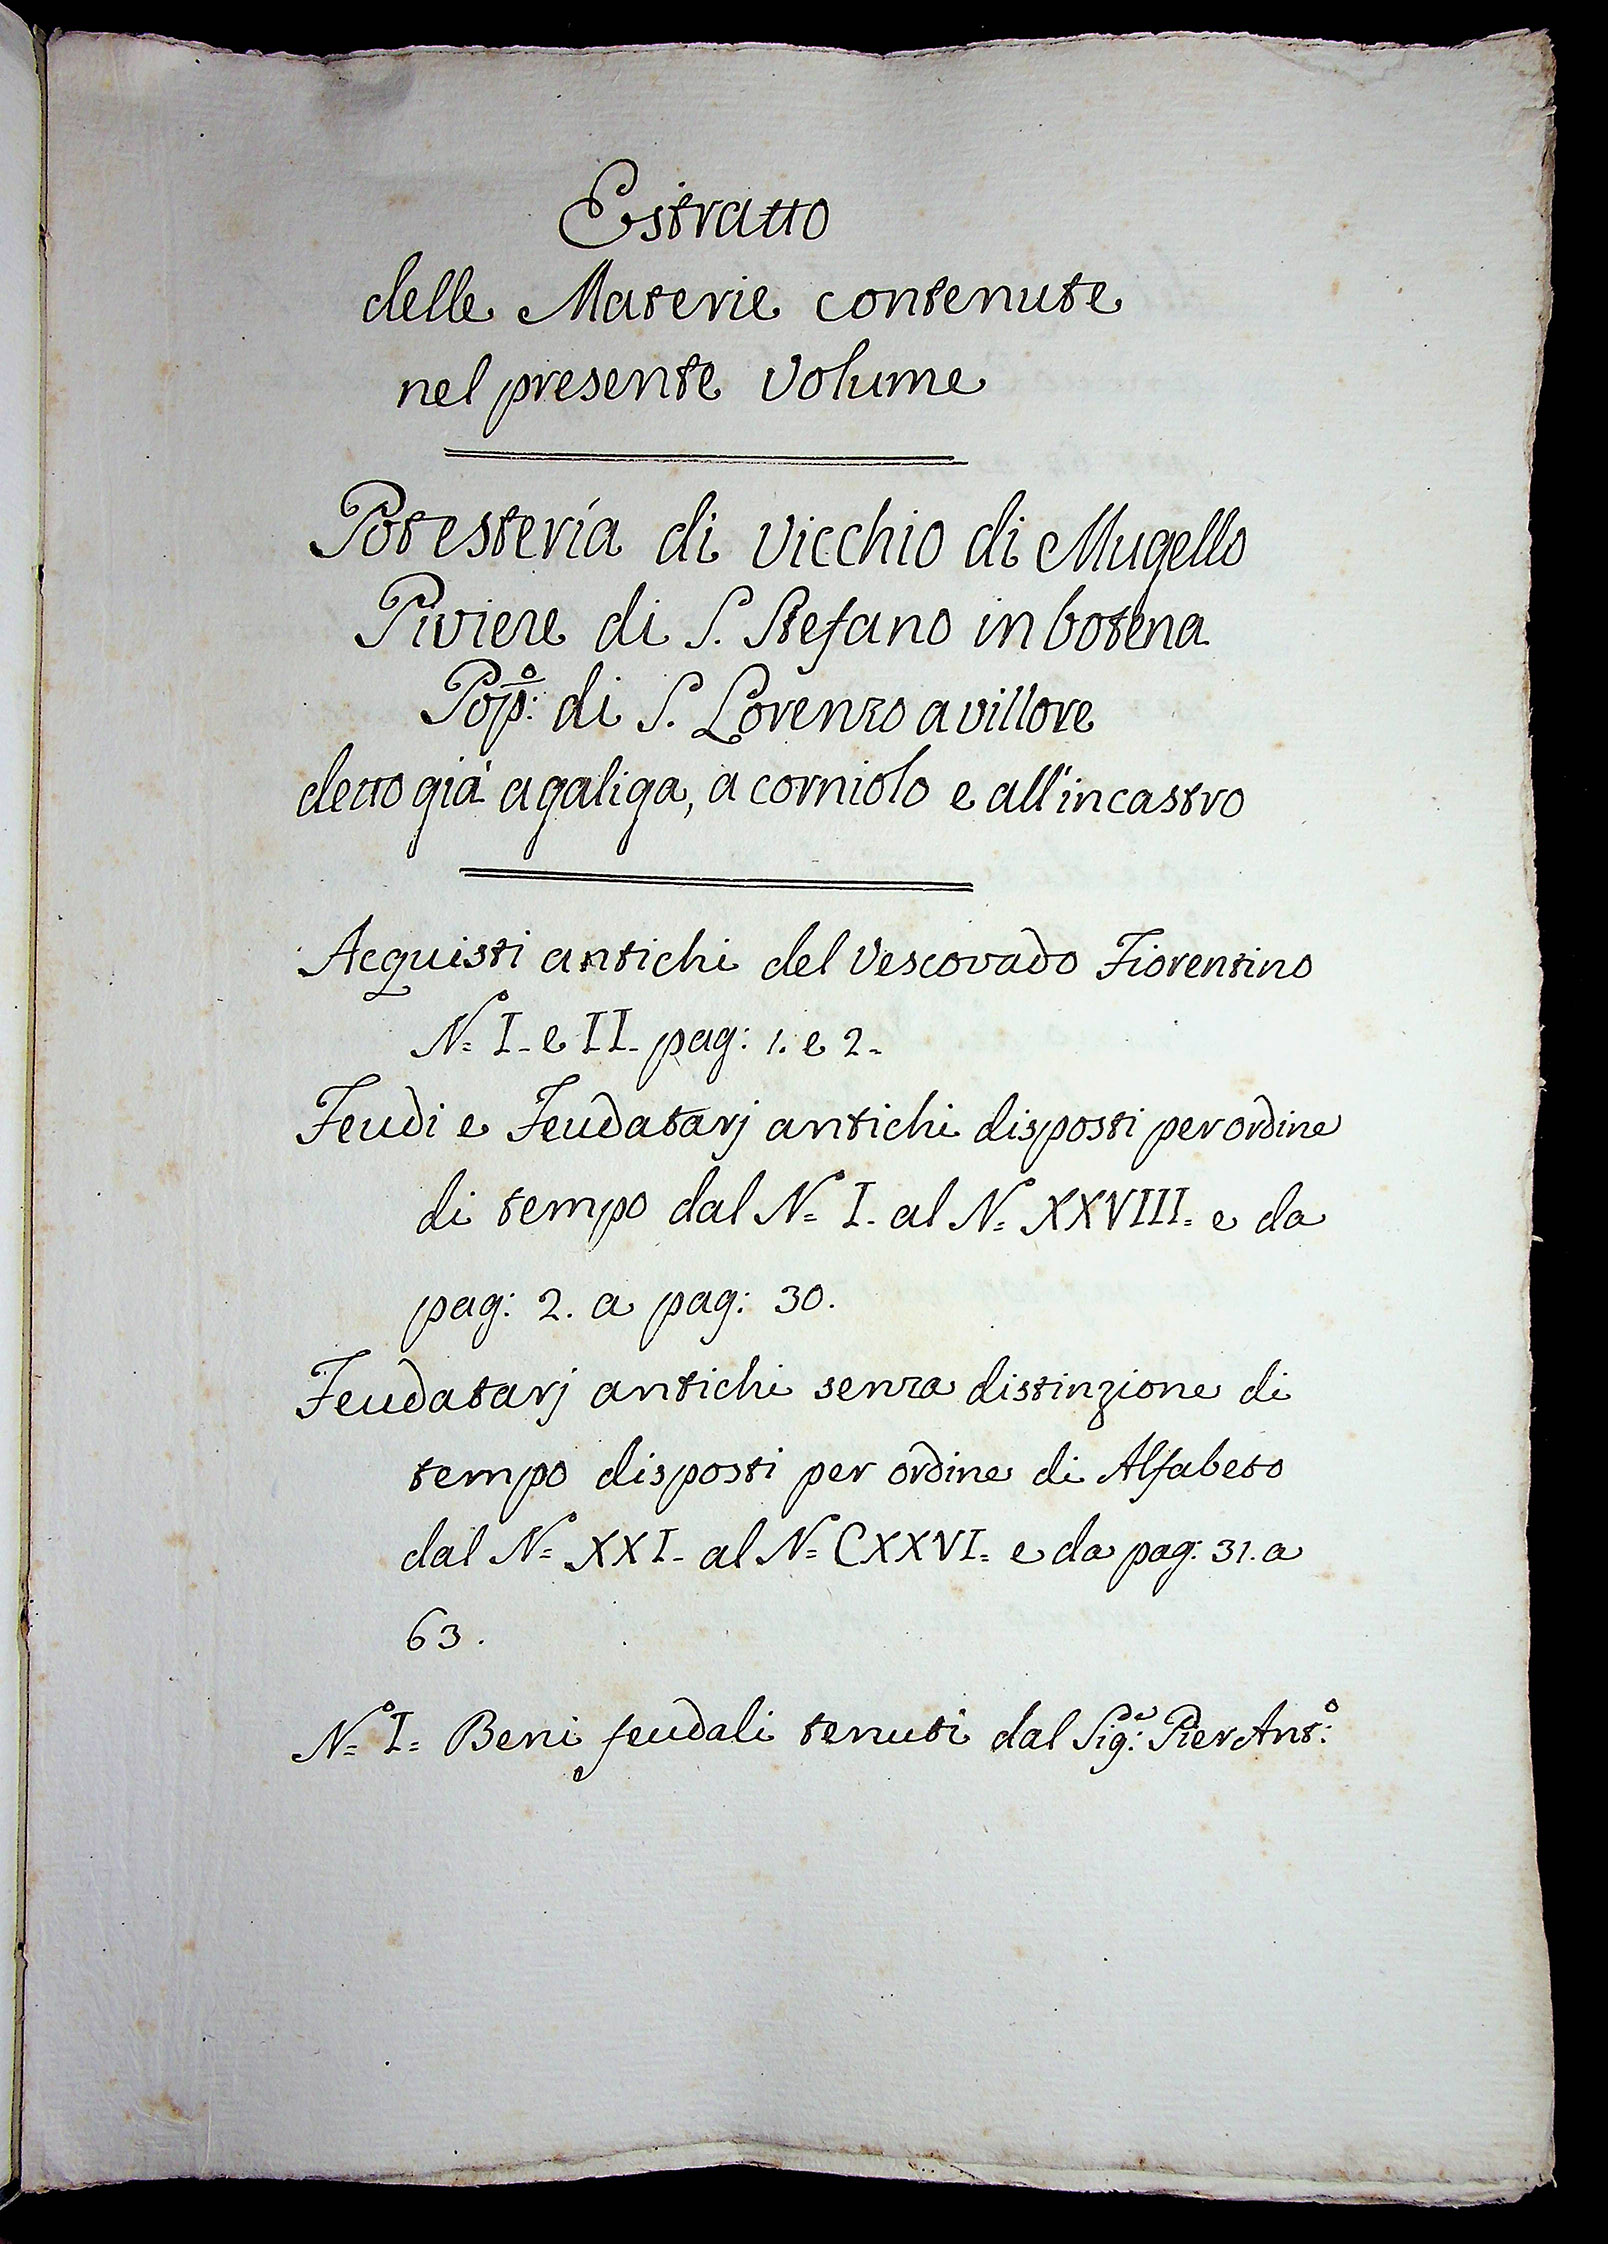 Estratto
delle Materie contenute
nel presente Volume
Potesteria di Vicchio di Mugello
Piviere di S. Stefano in botena
Pop:º di S. Lorenzo a villore
detto già a galiga, a corniolo e all'incastro
Acquisti antichi del Vescovado Fiorentino
Nº I. e II. pag: 1. e 2.
Feudi e Feudatarj antichi disposti per ordine
di tempo dal Nº I. al Nº XXVIII. e da
pag: 2. a pag: 30.
Feudatarj antichi senza distinzione di
tempo disposti per ordine di Alfabeto
dal Nº XXI. al Nº CXXVI. e da pag: 31. a
63.
Nº I. Beni feudali tenuti dal Sig:re Pier Ant:º